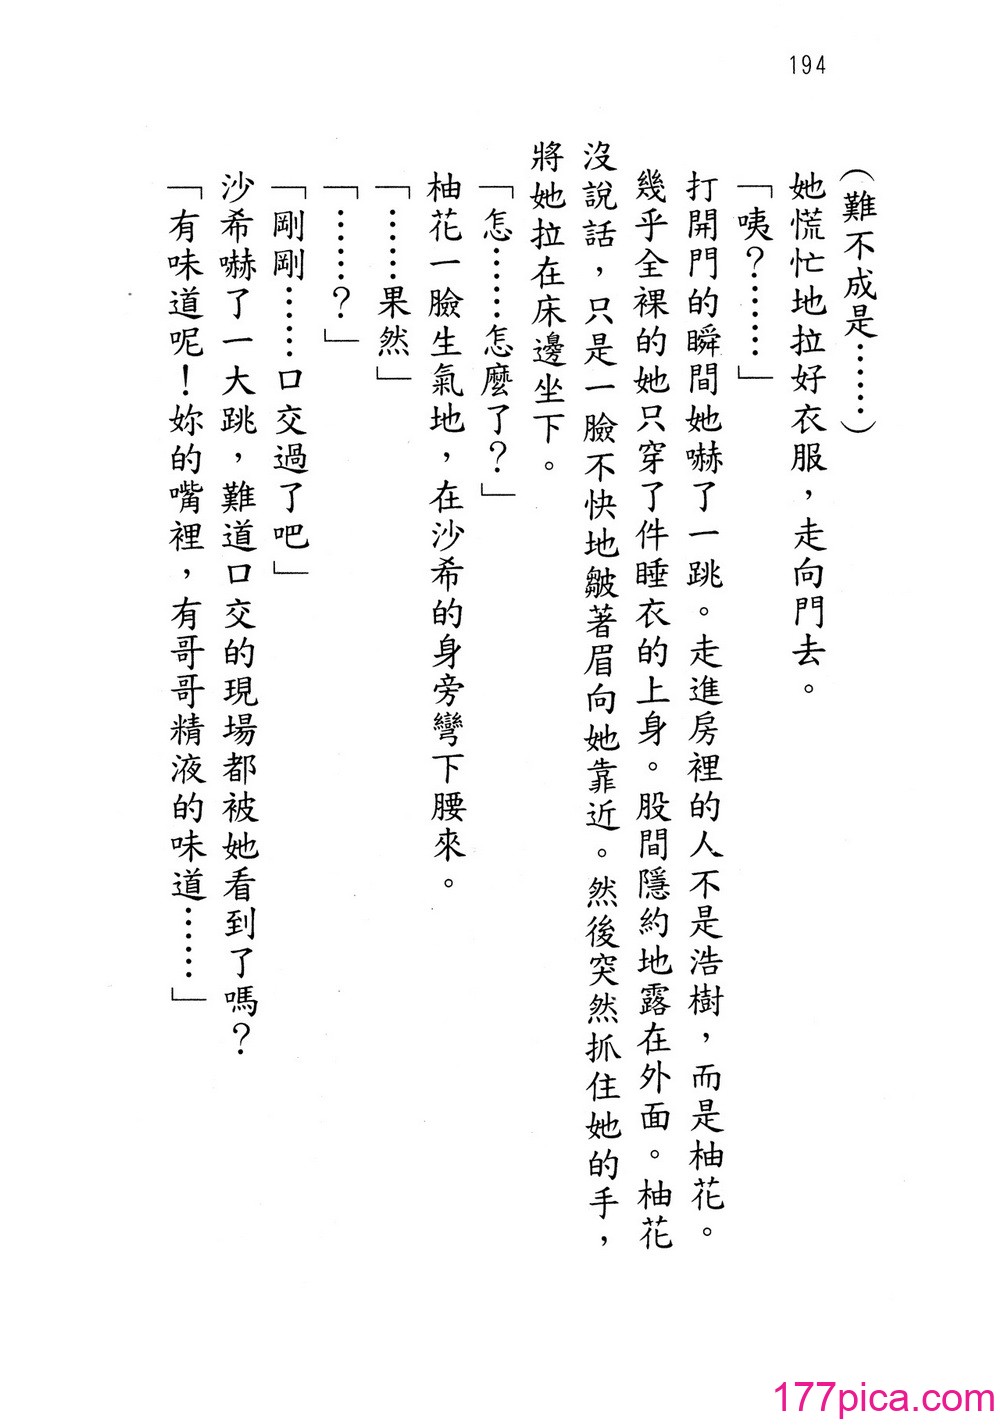 194
(難不成是……)
她慌忙地拉好衣服，走向門去。
「咦？………」
打開門的瞬間她嚇了一跳。走進房裡的人不是浩樹，而是柚花。
幾乎全裸的她只穿了件睡衣的上身。股間隱約地露在外面。柚花
沒說話，只是一臉不快地皺著眉向她靠近。然後突然抓住她的手，
將她拉在床邊坐下。
「怎……怎麼了？」
柚花一臉生氣地，在沙希的身旁彎下腰來。
「……果然」
「………？」
「剛剛……口交過了吧」
沙希嚇了一大跳，難道口交的現場都被她看到了嗎？
「有味道呢！妳的嘴裡，有哥哥精液的味道……」
177pica.com